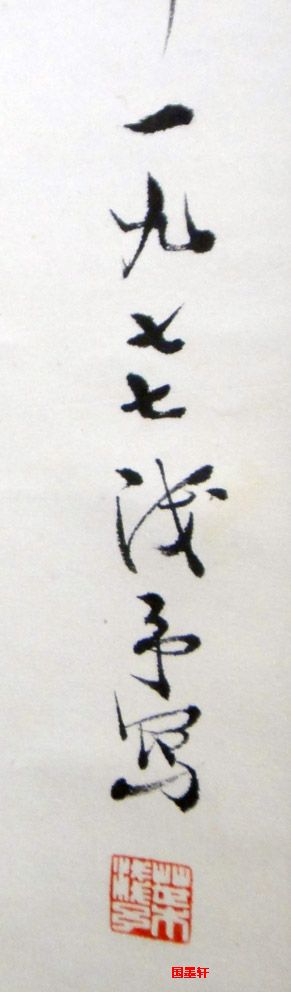 一九七七浅予写
葉浅予
国墨轩